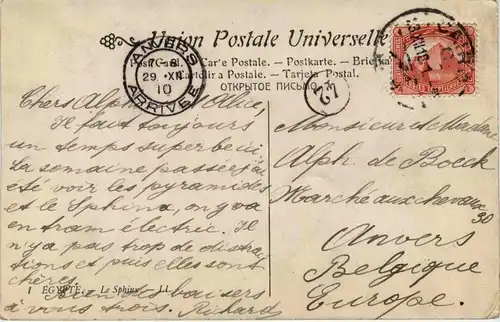 Union Postale Universelle
Post Card. - Car'e Postale. - Postkarte. - Briefka
Cartolir a Postale. - Tarjeta Postal.
ОТКРЫТОЕ ПИСЬМО
ANVERS
7-8
29 XII
10
ARRIVÉE
Chers Alph. Alice,
Il fait toujours
un temps superbe ici
La semaine passée j'ai
été voir les pyramides
et le Sphinx, on y va
en tram électric. Il
n'y a pas trop de distrac
tions et puis elles sont
chères.
Bien des baisers
à vous trois. Richard
1 EGYPTE. Le Sphinx LL
Monsieur et Madame
Alph. de Boeck
Marché aux chevaux
30
Anvers
Belgique
Europe.